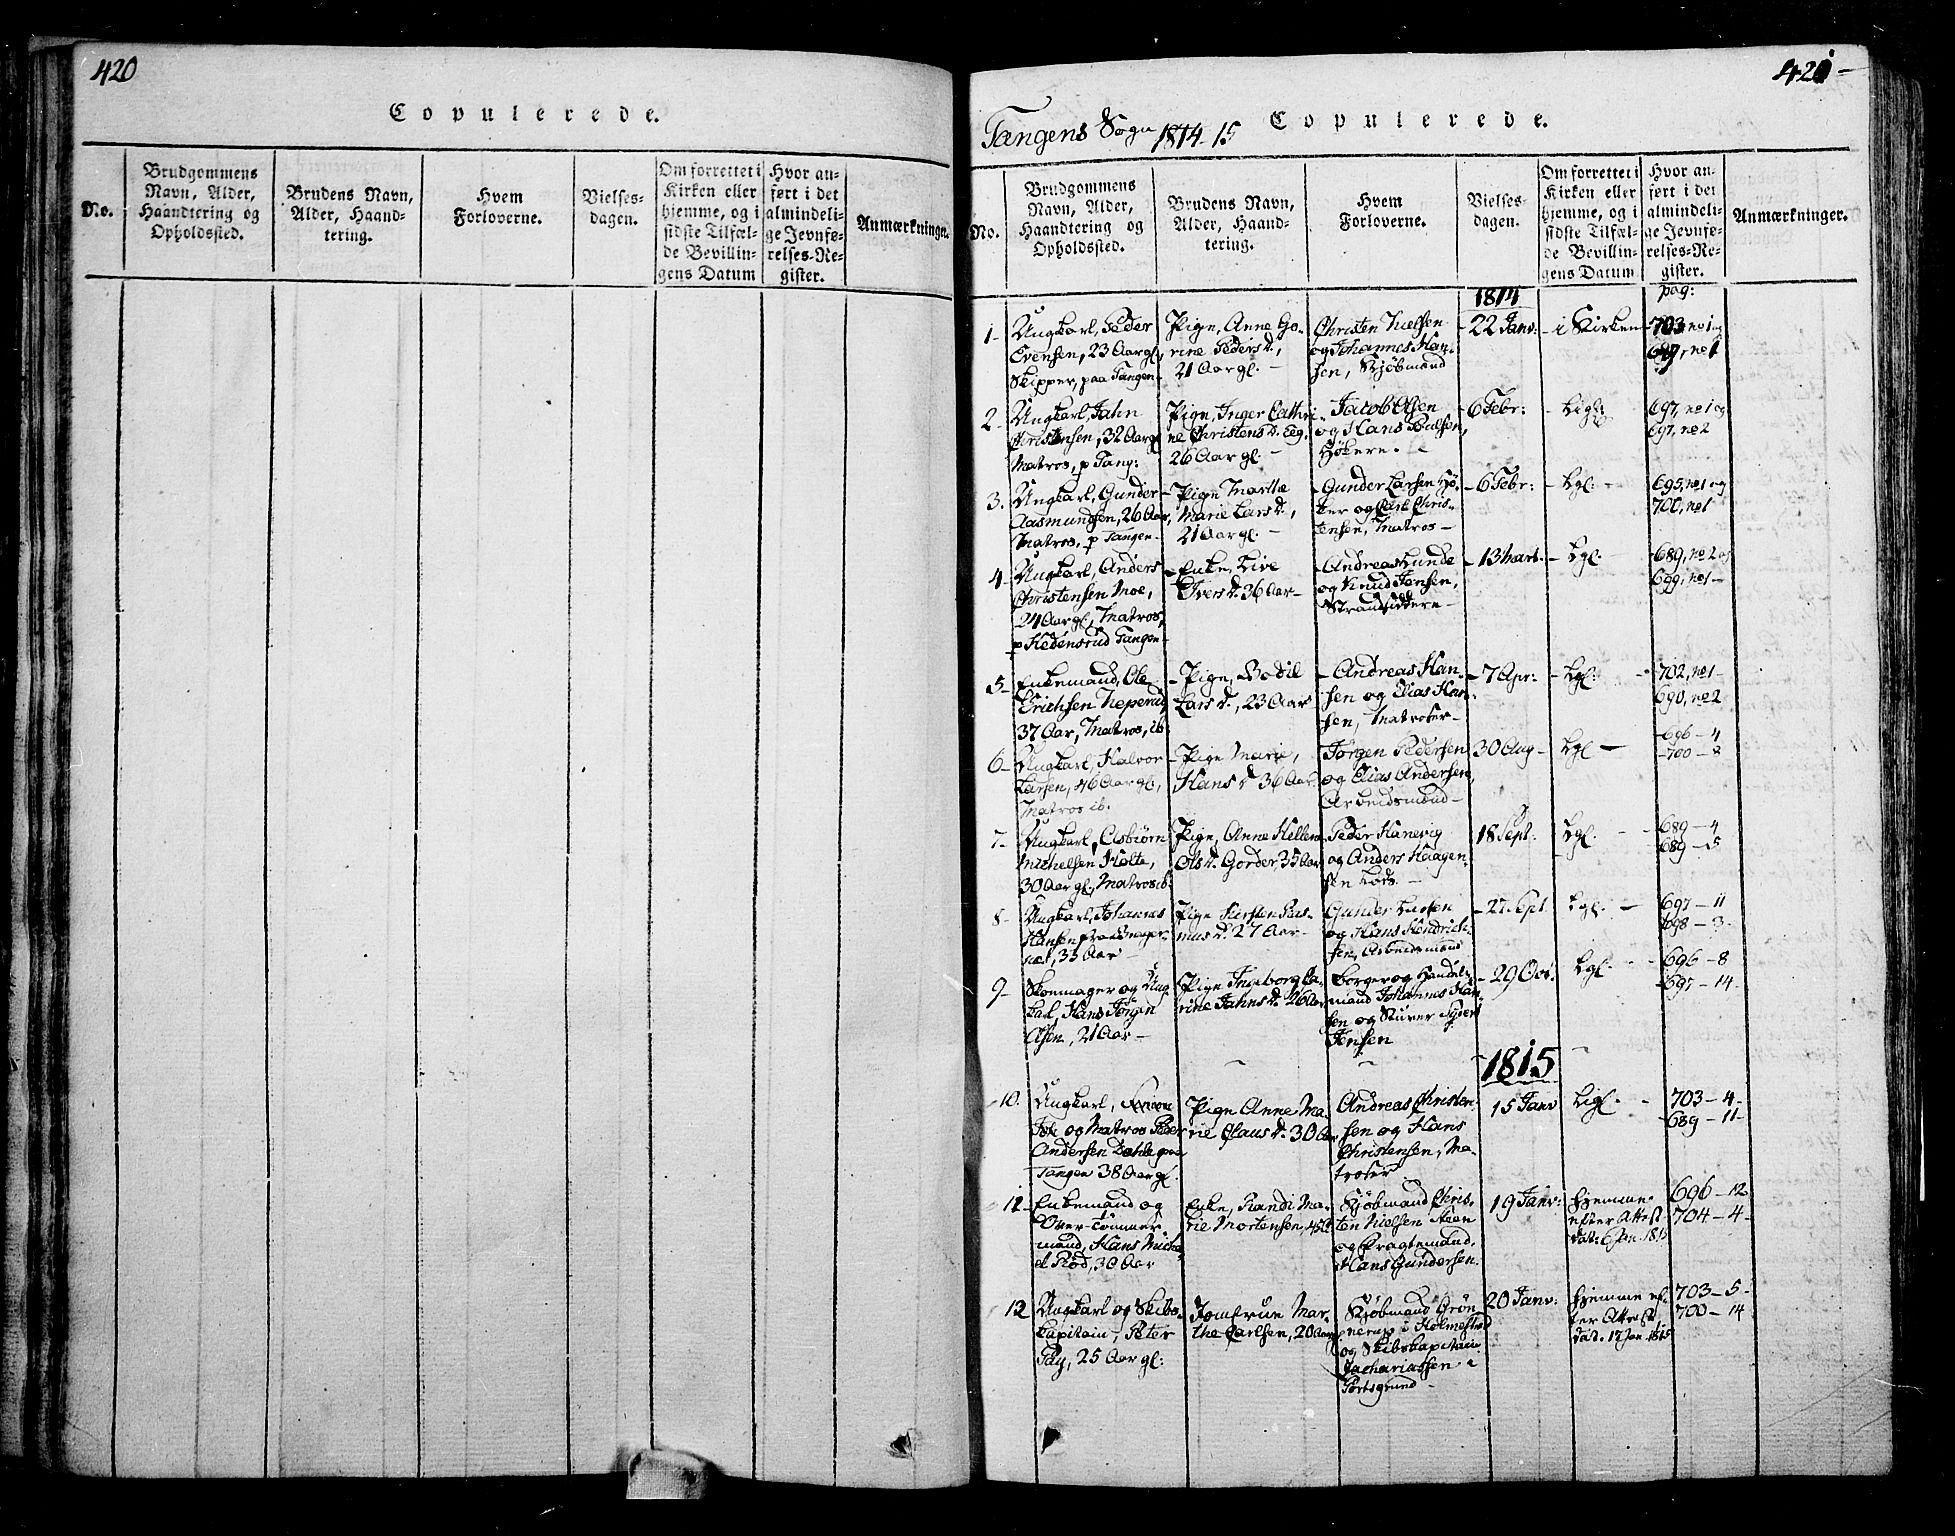 420
Copulerede.
No.
Brudgommens
Navn, Alder,
Haandtering og
Opholdssted.
Brudens Navn,
Alder, Haand-
tering.
Hvem
Forloverne.
Vielses-
dagen.
Om forrettet i
Kirken eller
hjemme, og i
sidste Tilfæl-
de Bevillin-
gens Datum
Hvor an-
ført i det
almindeli-
ge Jevnfø-
relses-Re-
gister.
Anmærkninger.
421
Tangens Sogn 1814-15
Copulerede.
No.
Brudgommens
Navn, Alder,
Haandtering og
Opholdssted.
Brudens Navn,
Alder, Haand-
tering.
Hvem
Forloverne.
Vielses-
dagen.
Om forrettet i
Kirken eller
hjemme, og i
sidste Tilfæl-
de Bevillin-
gens Datum
Hvor an-
ført i det
almindeli-
ge Jevnfø-
relses-Re-
gister.
Anmærkninger.
1814
pag:
1- Ungkarl, Peder
Evensen, 23 Aar gl,
Skipper, paa Tangen-
Pige, Anne Go-
rine Peders d.,
21 Aar gl. -
Christen Nielsen
og Johannes Han-
sen, Kjøbmænd
22 Janv:
i Kirken
703 no 1 og
no 1
2- Ungkarl, Jahn
Christensen, 32 Aar gl
Matros, p Tang:
Pige, Inger Cathri-
ne Christens d. Eeg,
26 Aar gl. -
Jacob Olsen
og Hans Poulsen,
Høkere.
6 Febr:
Ligl:
697, no 1 og
697, no 2
3. Ungkarl, Gunder
Aasmundsen, 26 Aar,
Matros, p Tangen-
Pige Marthe
Marie Lars d.,
21 Aar gl. -
Gunder Larsen Hø-
ker og Carl Chris-
tensen, Matros-
6 Febr:
Lgl:
695, no 1 og
700, no 1
4- Ungkarl, Anders
Christensen Moe,
24 Aar gl, Matros,
p Hedensrud Tangen-
Enke, Live
Ivers d. 36 Aar-
Andreas Lunde
og Knud Jensen,
Strandsiddere-
13 Mart.
Lgl.
689, no 2 og
699, no 1-
5- Enkemand, Ole
Erichsen Neperud,
37 Aar, Matros, ib.
Pige, Bodil
Lars d., 23 Aar
Andreas Han-
sen og Elias Han-
sen, Matroser-
7 Apr:
Lgl:
702, no 1-
690, no 2
6- Ungkarl, Halvor
Larsen, 46 Aar gl,
Matros ib.
Pige Marie,
Hans d. 36 Aar
Jørgen Pedersen
og Elias Andersen,
Arbeidsmænd-
30 Aug-
Lgl-
696-4
700-2
7- Ungkarl, Asbiørn
Michelsen Holte,
30 Aar gl, Matros ib.
Pige, Anne Hellene
Ols d. Gorder, 35 Aar
Peder Hanevig
og Anders Haagen-
sen Lods. -
18 Sept.
Lgl.
689-4
689-5
8- Ungkarl, Johannes
Hansen
33 Aar-
Pige Kirsten Ras-
mus d. 27 Aar-
Gunder Larsen
og Hans Hendrich-
sen, Arbeidsmænd
27 Sept
Lgl.
697-11
698-3
9- Skoemager og Ung-
karl, Hans Jørgen
Olsen, 21 Aar-
Pige Ingeborg Ca-
rine Jahns d. 26 Aar
Borger og Handels-
mand Johannes Han-
sen og Stuver
Jensen
29 Oct.
Lgl.
696-8
695-14-
1815
10. Ungkarl,
og Matros Peder
Andersen Dahle paa
Tangen 38 Aar gl.
Pige Anne Ma-
rie Claus d. 30 Aar
Andreas Christen-
sen og Hans
Christensen, Ma-
troser
15 Janv
Ligl.
703-4-
689-11-
11- Enkemand og
Over-Tømmer-
mand, Hans Micha-
el Rød, 30 Aar
Enke, Randi Ma-
rie Mortensen,
Kjøbmand Chris-
ten Nielsen Steen
og Fragtemand,
Hans Gundersen.
19 Janv:
hjemme
efter Attest
dat: 6 Jan. 1815
696-12
704-4-
12 Ungkarl og Skibs-
kapitain, Peter
Fay, 25 Aar gl:
Jomfrue Mar-
the Carlsen, 20 Aar
Kjøbmand Grøn-
nerup i Holmestrand
og Skibskapitain
Zachariassen i
Porsgrund-
20 Janv:
hjemme ef-
ter Attest
dat. 17 Jan. 1815
703-5-
700-14